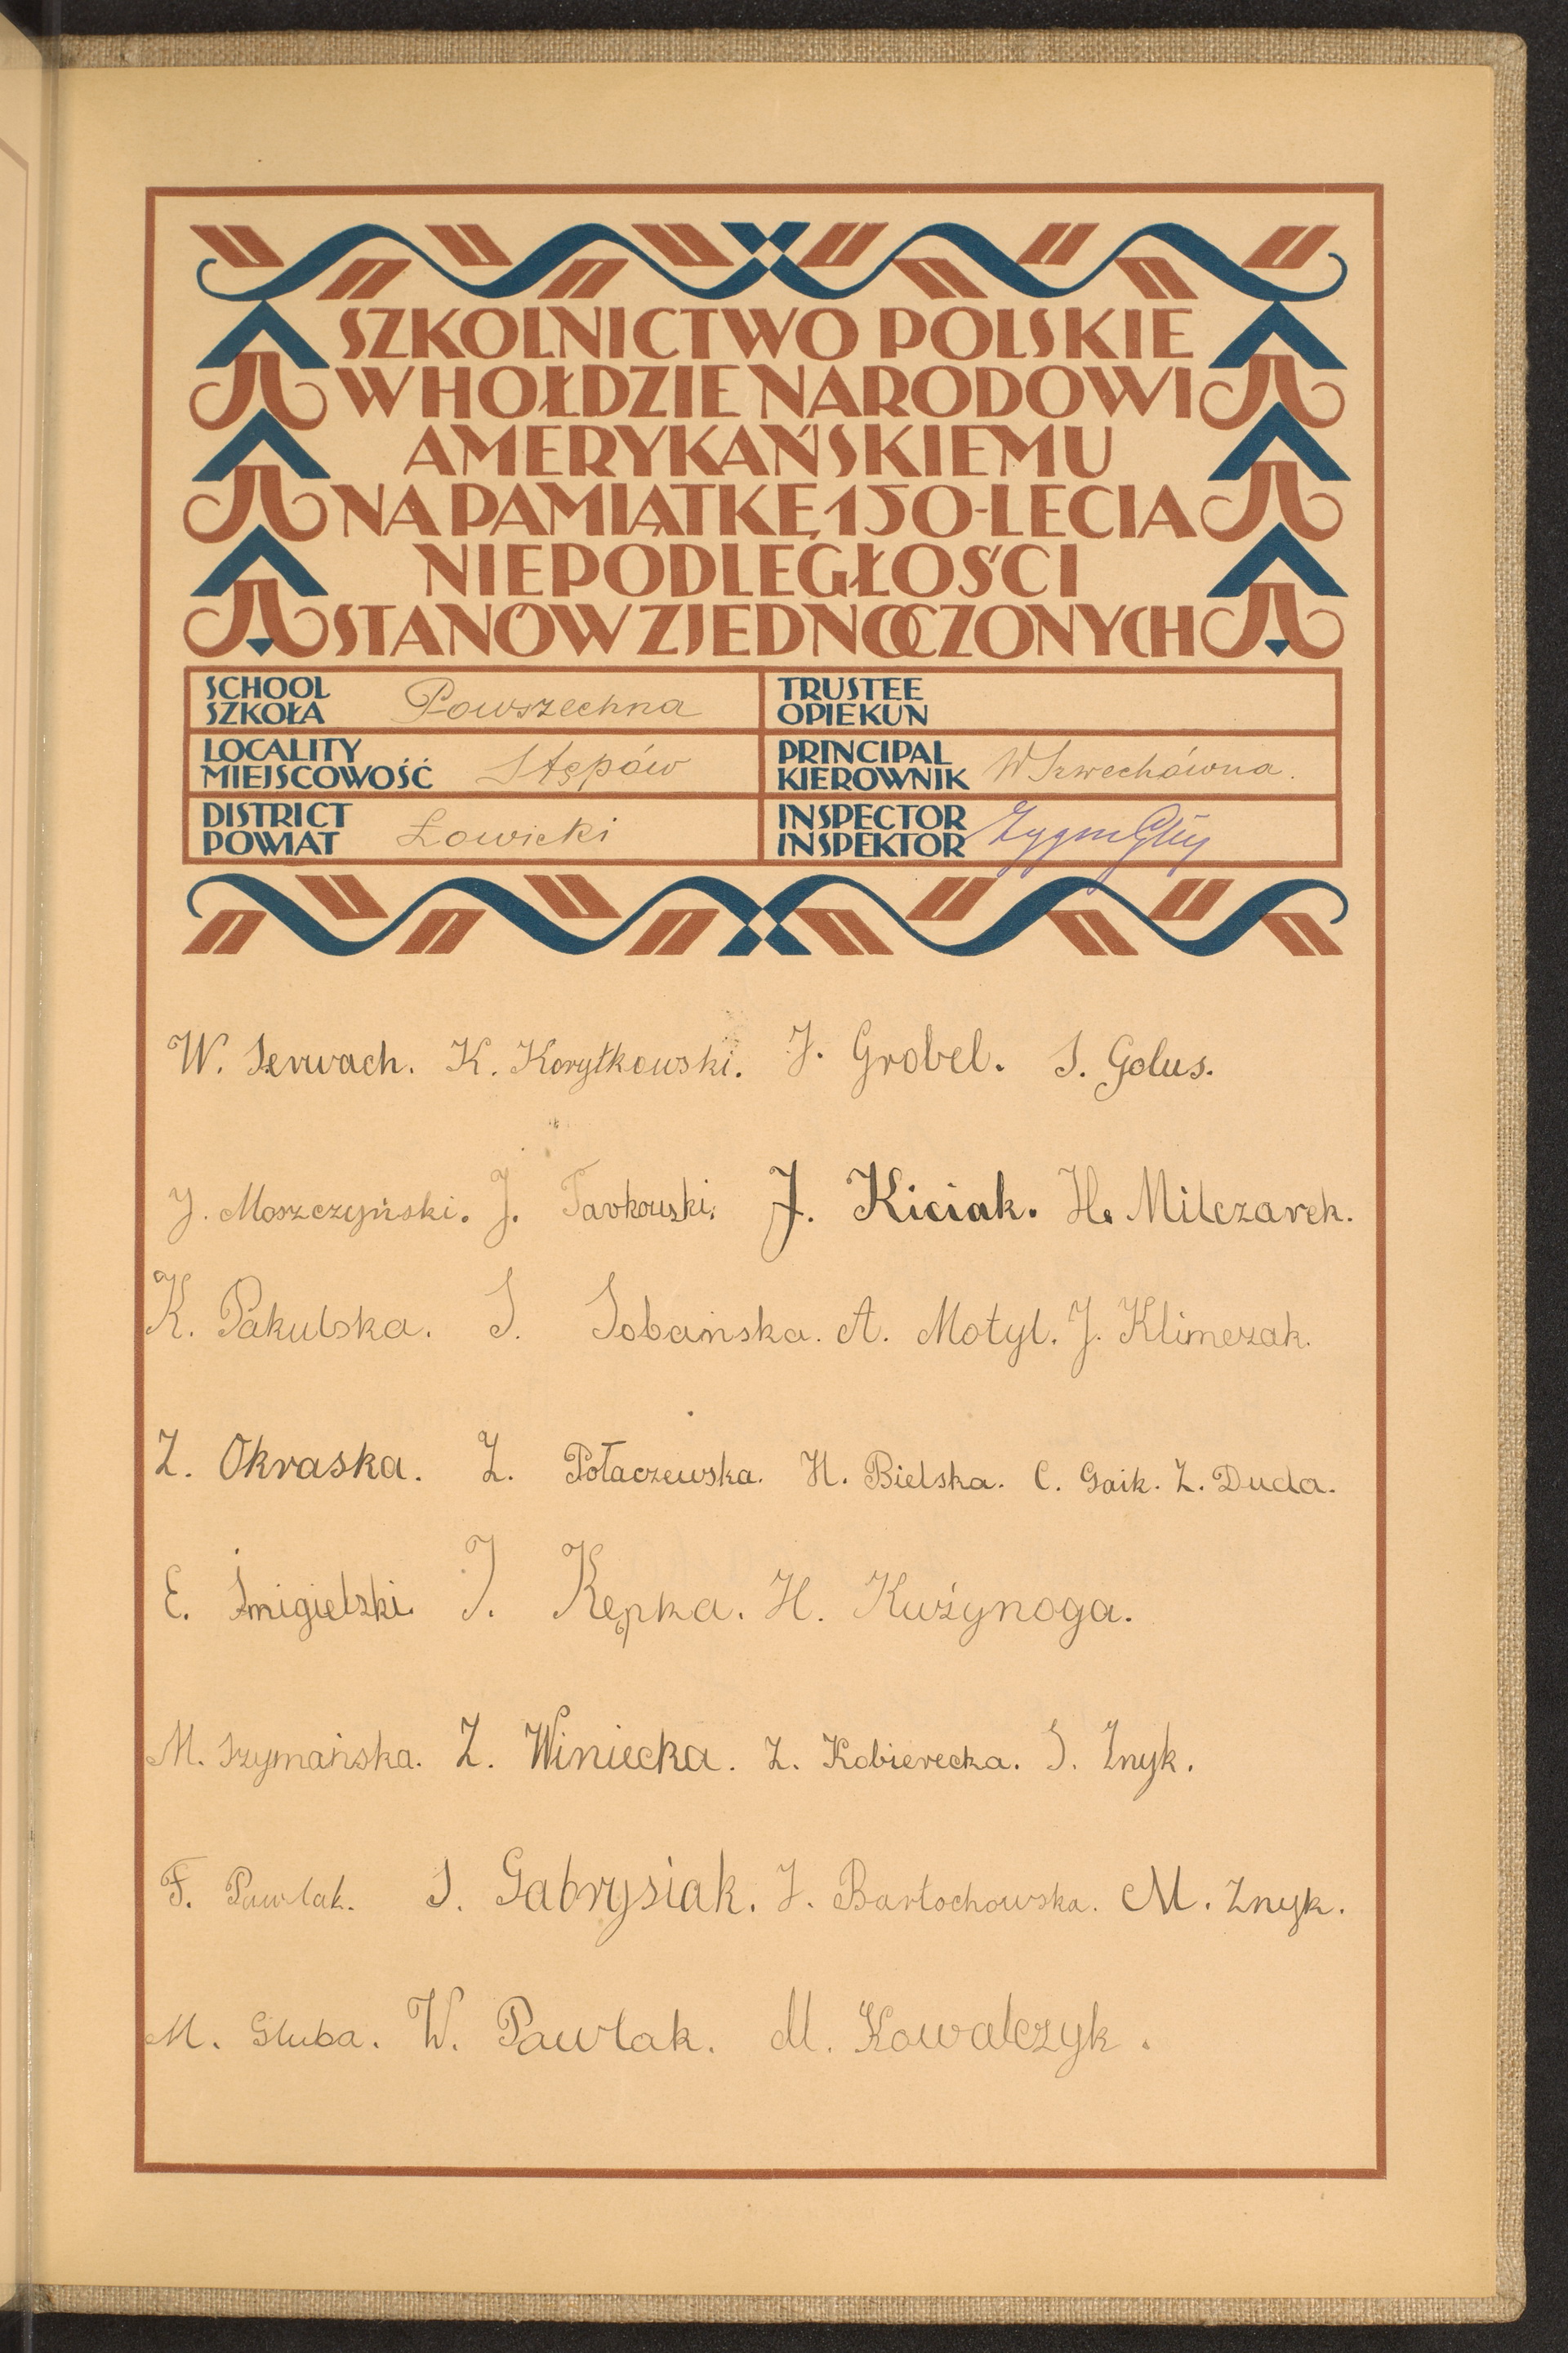 SZKOLNICTWO POLSKIE
W HOŁDZIE NARODOWI
AMERYKAŃSKIEMU
NA PAMIĄTKĘ 150-LECIA
NIEPODLEGŁOŚCI
STANÓW ZJEDNOCZONYCH
SCHOOL
SZKOŁA Powszechna
TRUSTEE
OPIEKUN
LOCALITY
MIEJSCOWOŚĆ Stępów
PRINCIPAL
KIEROWNIK W Szwechówna.
DISTRICT
POWIAT Łowicki
INSPECTOR
INSPEKTOR
W. Serwach. K. Korytkowski. J. Grobel. S. Golus.
J. Moszczyński. J. Tarkowski. J. Kiciak. H. Milczarek.
K. Pakulska. S. Sobańska. A. Motyl. J. Klimczak.
Z. Okraska. Z. Połaczewska. H. Bielska. C. Gaik. Z. Duda.
E. Śmigielski. J. Kępka. H. Kużynoga.
M. Szymańska. Z. Winiecka. Z. Kobierecka. S. Znyk.
F. Pawlak. S. Gabrysiak. J. Bartochowska. M. Znyk.
M. Gluba. W. Pawlak. M. Kowalczyk.